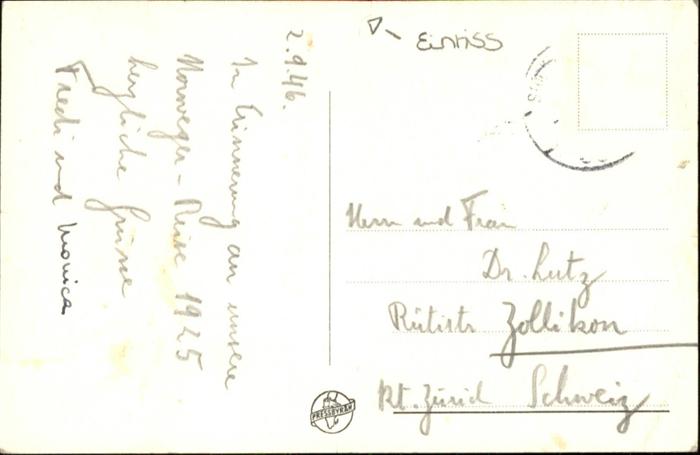 Einriss
2.9.46.
In Erinnerung an unsere
Norweger-Reise 1925
herzliche Grüsse
Fredi und Monica
Herrn und Frau
Dr. Lutz
Rütistr Zollikon
Kt. Zürich Schweiz
PRESSBYRÅN